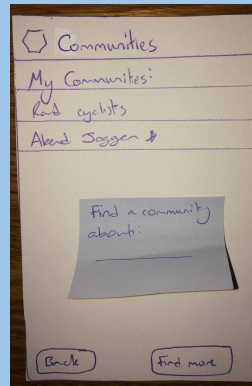 Communities
My Communites:
Road cyclists
Find a community
about:
Back
Find more